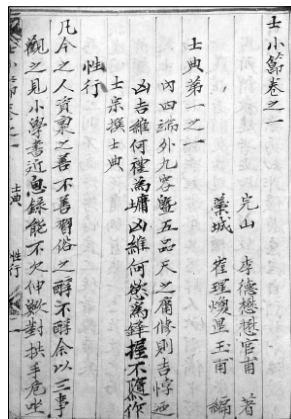 士小節卷之一
完山 李德懋懋官甫 著
蕐城 崔瑆煥星玉甫 編
士典第一之一
內四端外九容曁五品天之畀脩則吉悖迺
凶吉維何禮為墉凶維何慾為鋒握不隳作
士宗撰士典
性行
凡今之人資稟之善不善習俗之醇不醇余以三事
觀之見小學書近思錄能不欠伸歟對拱手危坐
士典 性行